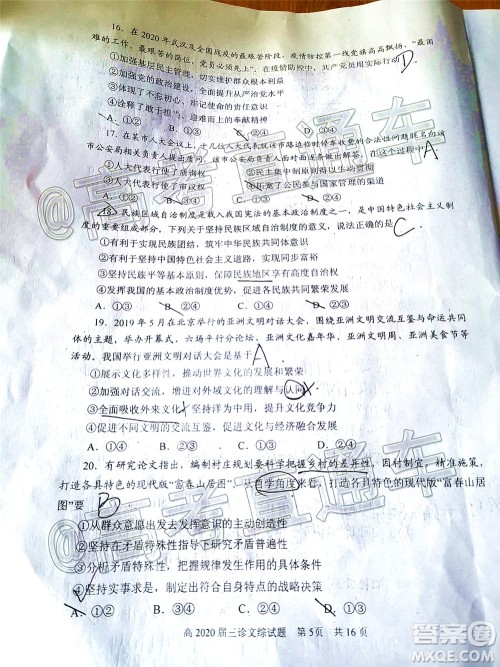 16．在2020年武汉及全国战疫的最艰苦阶段，疫情防控第一线党旗高高飘扬，“最困
难的工作、最艰苦的岗位，党员必须先上”，在疫情防控中，共产党员用实际行动 D
①加强基层民主管理，切实维护群众根本利益
②加强党的政治建设，提升全面从严治党水平
③诠释了敢于担当、牢记使命的责任意识
④诠释了甘于奉献、迎难而上的奉献精神
A．①② B．①③ C．②④ D．③④
17．在某市人大会议上，十几位人大代表就该市路边临时停车收费的合法性问题联名向
市公安局相关负责人提出 该市公安局负责人逐一做出解答，在这个过程中 A
①人大代表行使了 ②民主集中制原则得以生动贯彻
③人大代表行使了 ④扩大了公民参与国家管理的渠道
A．①② B．①③ C．②④ D．③④
18．民族区域自治制度是载入我国宪法的基本政治制度之一，是中国特色社会主义制
度的重要组成部分。下列关于坚持民族区域自治制度的意义，说法正确的是 C
①有利于实现民族团结，筑牢中华民族共同体意识
②有利于坚持中国特色社会主义道路，实现同步富裕
③坚持民族平等基本原则，保障民族地区享有高度自治权
④发挥我国的基本政治制度优势，促进各民族共同繁荣发展
A．①③ B．②③ C．①④ D．②④
19．2019年5月在北京举行的亚洲文明对话大会，围绕亚洲文明交流互鉴与命运共同
体的主题，举办开幕式、六场平行分论坛、亚洲文化嘉年华、亚洲文明周、亚洲美食节等
活动。我国举行亚洲文明对话大会是基于 A
①展示文化多样性，推动世界文化的发展与繁荣
②加强对话交流，增进对外域文化的理解与认同
③全面吸收外来文化，坚持洋为中用，提升中华文化竞争力
④促进不同文明的交流互鉴，加强世界各国交流合作
A．①④ B．②③ C．①③ D．②④
20．有研究论文指出，编制村庄规划要科学把握乡村的差异性，因村制宜，精准施策，
打造各具特色的现代版“富春山居图”。从哲学角度来看，打造各具特色的现代版“富春山居
图”要 B
①从群众意愿出发去发挥意识的主动创造性
②坚持在矛盾特殊性指导下研究矛盾普遍性
③分析矛盾特殊性，把握规律发生作用的条件
④坚持实事求是，制定出符合自身特点的战略决策
A．①② B．①③ C．②④ D．③④
高2020届三诊文综试题 第5页 共16页
@高考直通车
@高考直通车